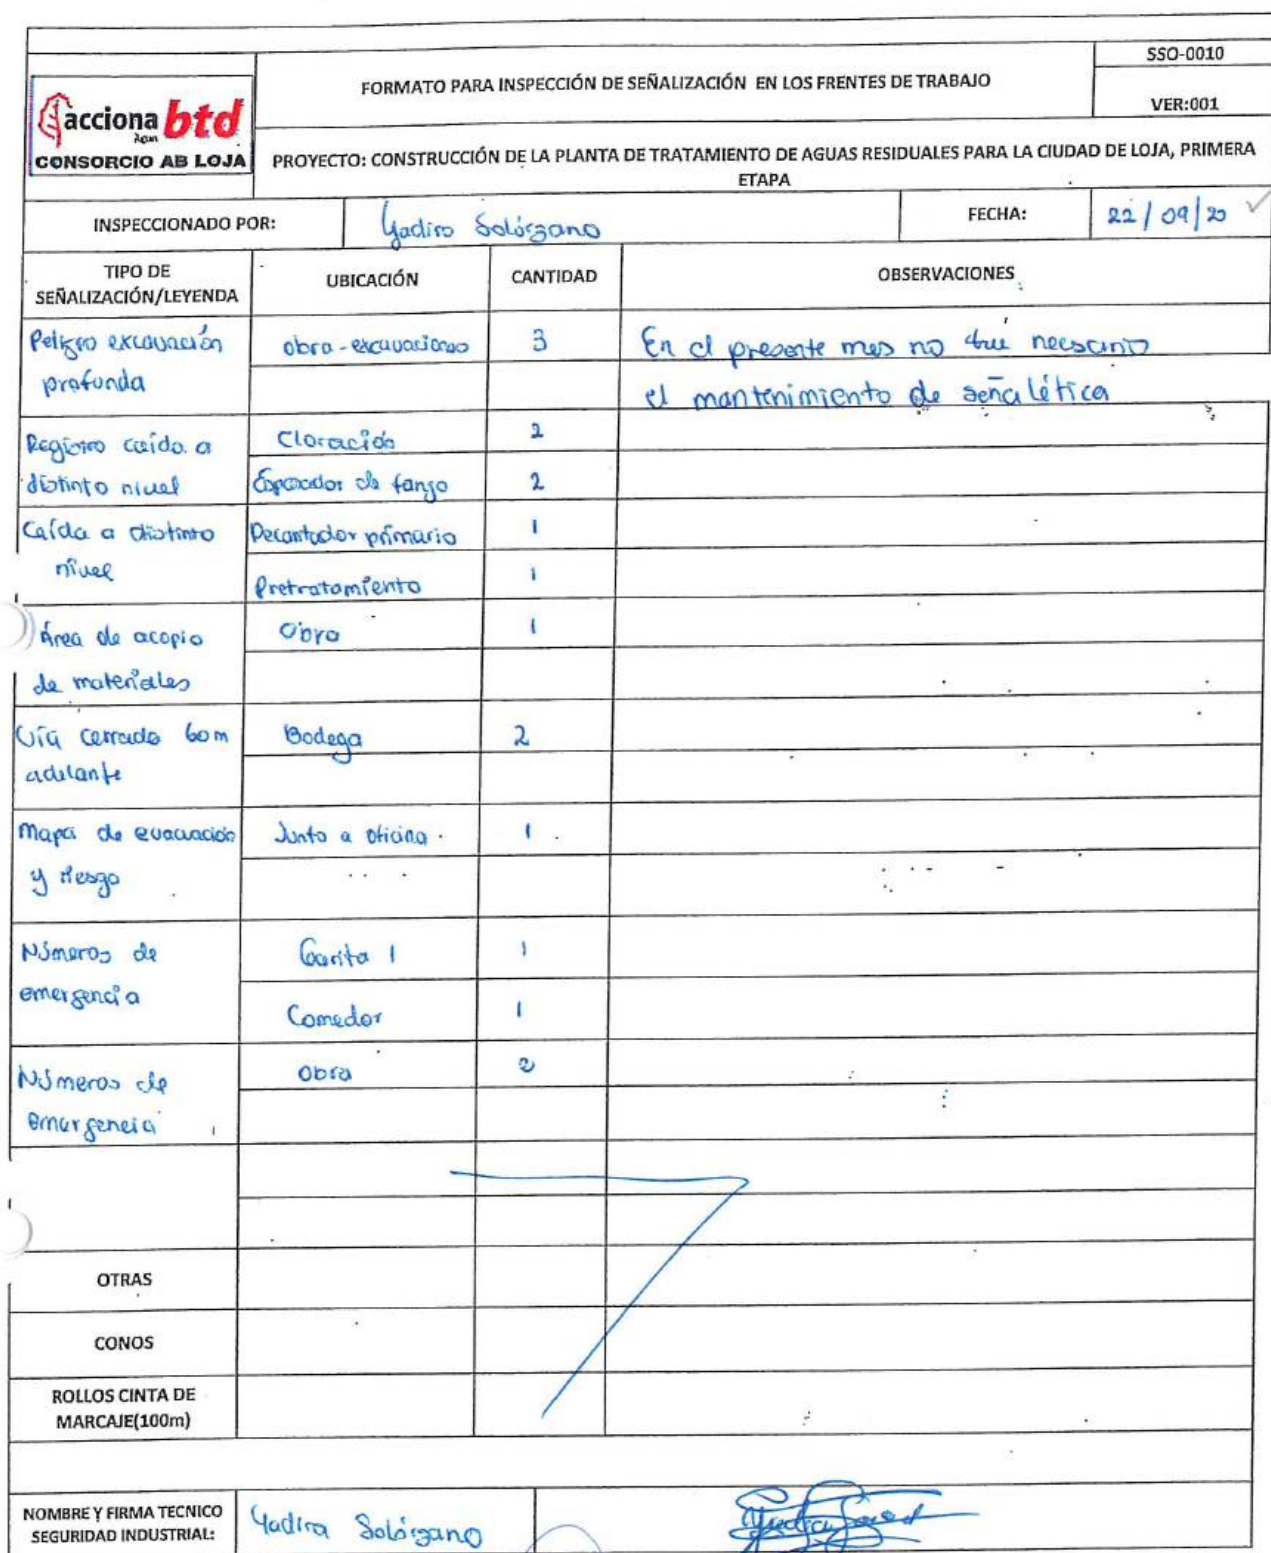 SSO-0010
acciona btd
Agua
CONSORCIO AB LOJA
FORMATO PARA INSPECCIÓN DE SEÑALIZACIÓN EN LOS FRENTES DE TRABAJO
VER:001
PROYECTO: CONSTRUCCIÓN DE LA PLANTA DE TRATAMIENTO DE AGUAS RESIDUALES PARA LA CIUDAD DE LOJA, PRIMERA
ETAPA
INSPECCIONADO POR: Yadira Solórzano FECHA: 22/09/20
TIPO DE SEÑALIZACIÓN/LEYENDA UBICACIÓN CANTIDAD OBSERVACIONES
Peligro excavación obra-excavaciones 3 En el presente mes no fue necesario
profunda el mantenimiento de señalética
Registro caída a Cloración 2
distinto nivel Espesador de fango 2
Caída a distinto Decantador primario 1
nivel Pretratamiento 1
Área de acopio Obra 1
de materiales
Vía cerrada 60m Bodega 2
adelante
Mapa de evacuación Junto a oficina 1
y riesgo
Números de Garita 1 1
emergencia Comedor 1
Números de obra 2
emergencia
OTRAS
CONOS
ROLLOS CINTA DE
MARCAJE(100m)
NOMBRE Y FIRMA TECNICO
SEGURIDAD INDUSTRIAL: Yadira Solórzano